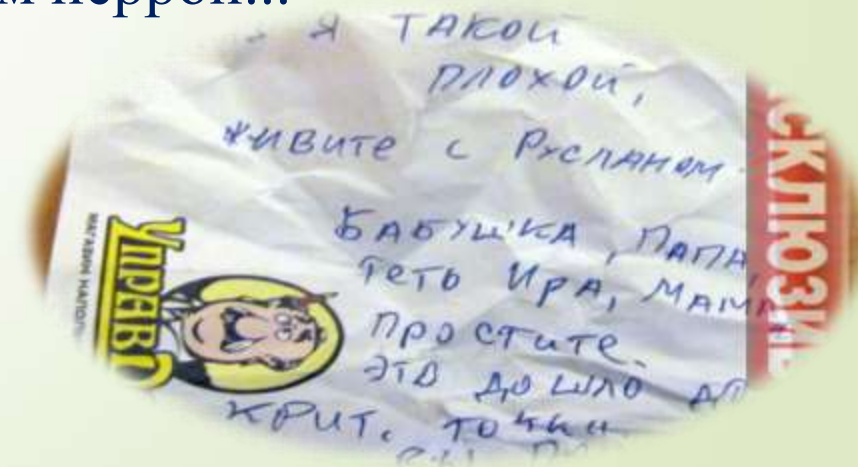 перрон...
Я ТАКОЙ
ПЛОХОЙ,
ЖИВИТЕ С РУСЛАНОМ
БАБУШКА, ПАПА,
ТЕТЬ ИРА, МАМА
ПРОСТИТЕ.
ЭТО ДОШЛО ДО
КРИТ. ТОЧКИ
УПРАВД
МАГАЗИН НАПОЛ
СКЛЮЗИВ